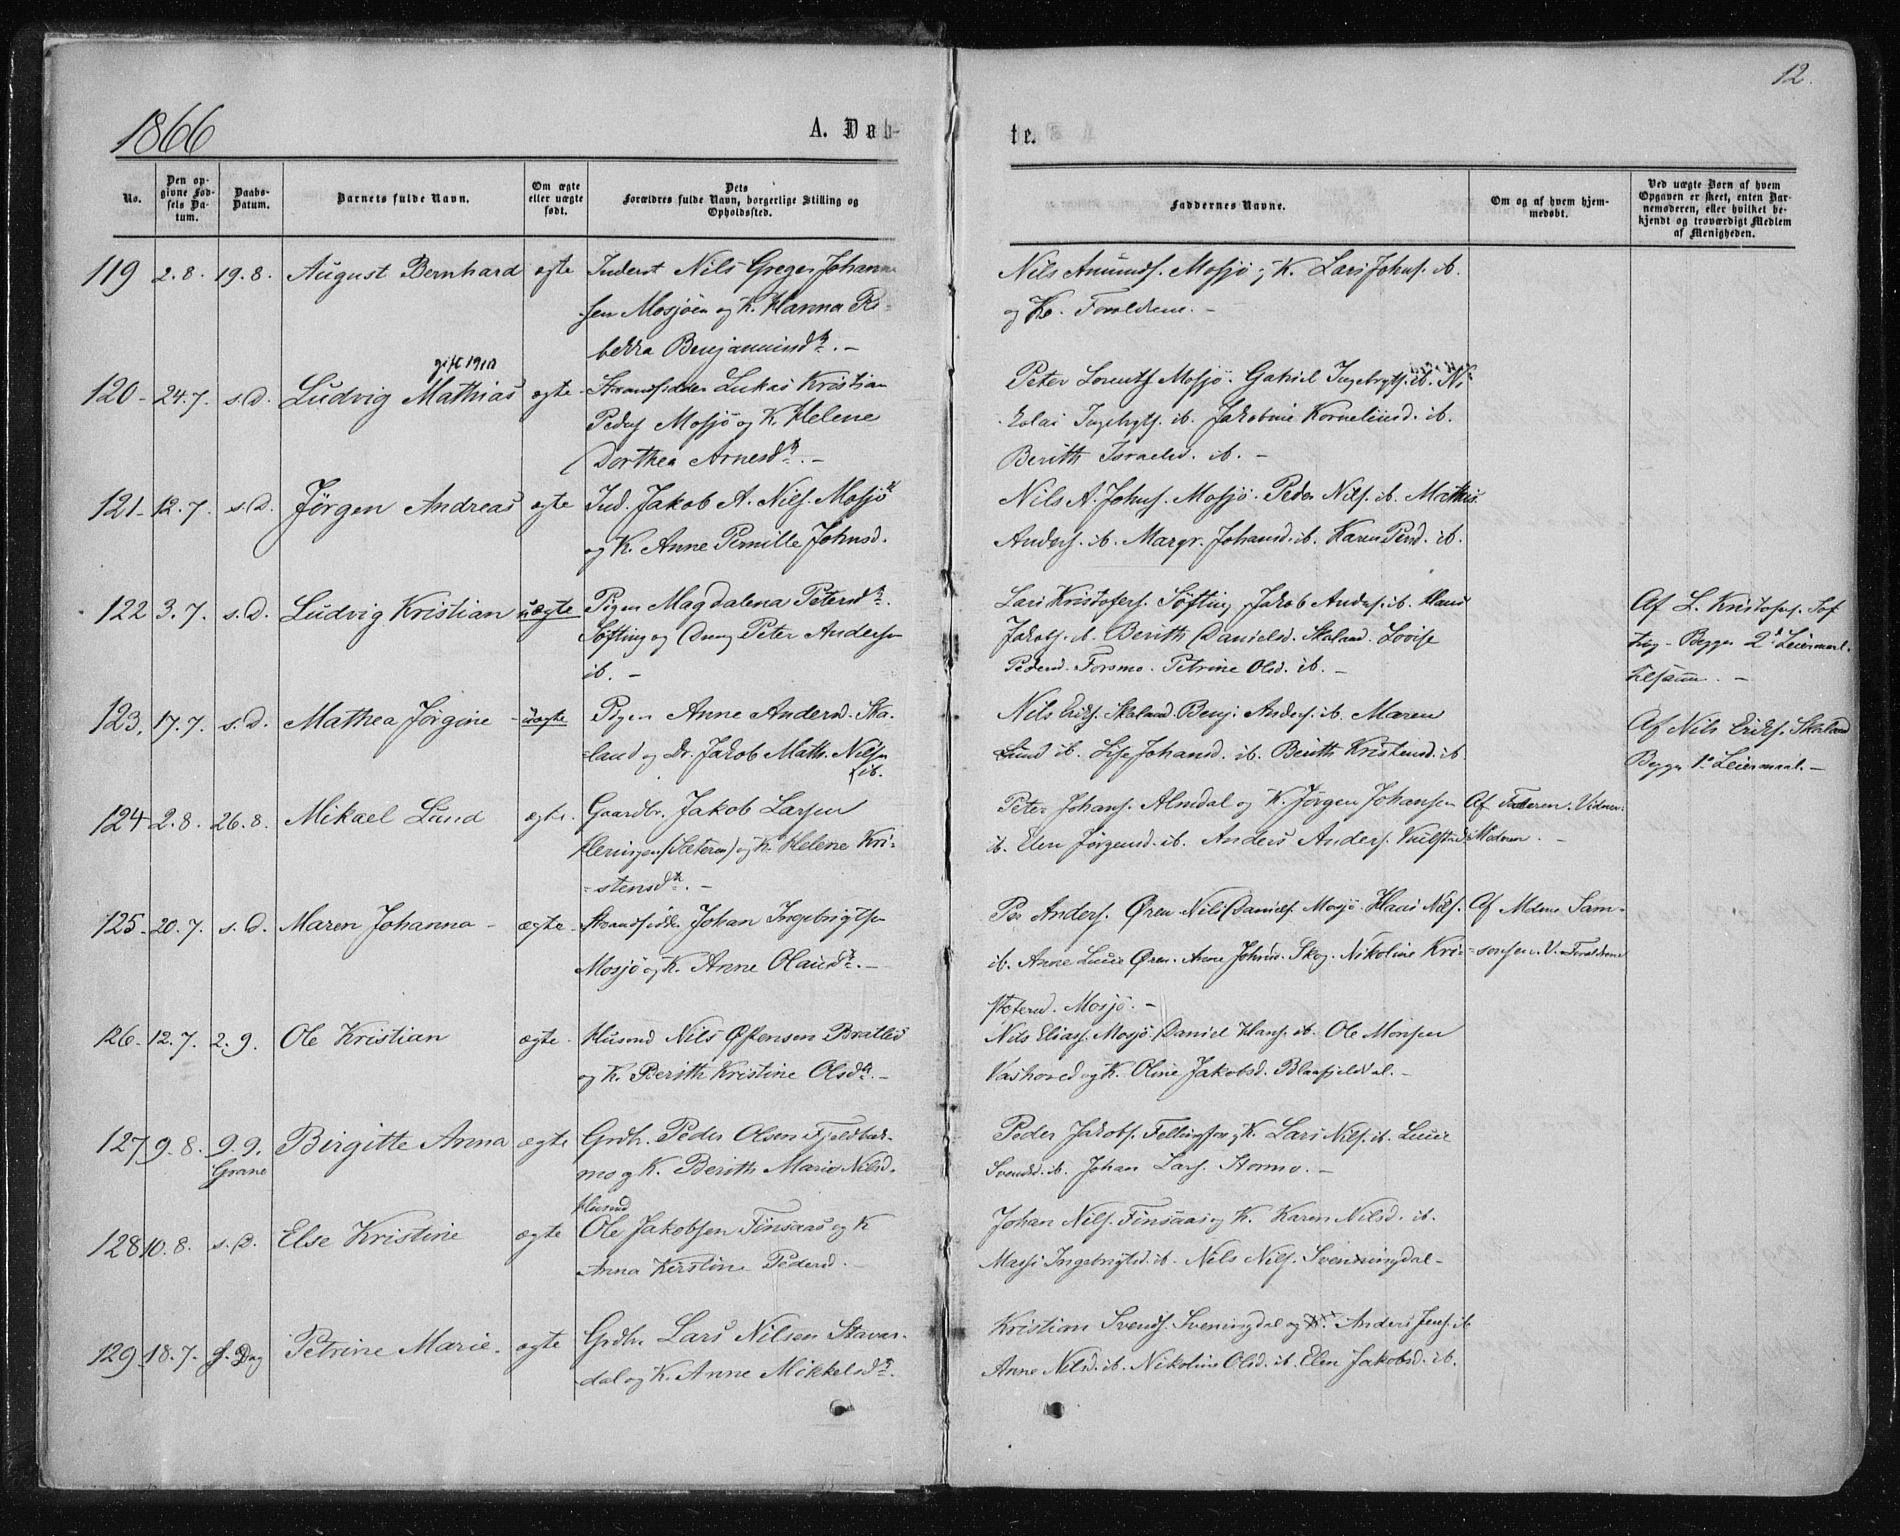 12.
1866
A. Døb-
te.
No.
Den op-
givne Fød-
sels Da-
tum.
Daabs-
Datum.
Barnets fulde Navn.
Om ægte
eller uægte
født.
Dets
Forældres fulde Navn, borgerlige Stilling og
Opholdssted.
Faddernes Navne.
Om og af hvem hjem-
medøbt.
Ved uægte Børn af hvem
Opgaven er skeet, enten Bar-
nemoderen, eller hvilket be-
kjendt og troværdigt Medlem
af Menigheden.
119 2.8. 19.8. August Bernhard ægte Inderst Nils Greger Johann
sen Mosjøen og K. Hanna Re-
bekka Benjaminsdtr. -
Nils Amunds. Mosjø og K. Lars Johns. ib.
og Ko. Forældrene. -
gift 1910
120- 24.7. s.D. Ludvig Mathias ægte Strandsidder Lukas Kristian
Peders Mosjø og K. Helene
Dorthea Arnesdtr. -
Peter Lorents. Mosjø. Gabriel Ingebrigts. ib. Ni-
kolai Ingebrigts. ib. Jakobine Korneliusd. ib.
Berith Israelsd. ib. -
121- 12.7. s.D. Jørgen Andreas ægte Ind. Jakob A. Nils. Mosjø
og K. Anne Pernille Johnsd.
Nils A. Johns. Mosjø. Peder Nils. ib. Mathis
Anders. ib. Margr. Johansd. ib. Karen Persd. ib.
122 3.7. s.D. Ludvig Kristian uægte Pigen Magdalena Petersdtr.
Søfting og Dreng Peter Andersen
ib. -
Lars Kristofers. Søfting Jakob Anders. ib. Hans
Jakobs. ib. Berith Danielsd. Skaland. Lovise
Pedersd. Forsmo. Petrine Olsd. ib. -
Af L. Kristofers. Søf
ting - Begges 2d Leiermaal.
tilsamm. -
123. 17.7. s.D. Mathea Jørgine - uægte Pigen Anne Andersd. Ska-
land og Dr. Jakob Math. Nilsen
ib.
Nils Eriks. Skaland. Benj. Anders. ib. Maren
Lund ib. Lise Johansd. ib. Berith Kristensd. ib
Af Nils Eriks. Skaland
Begges 1e Leiermaal. -
124 2.8. 26.8. Mikael Lund ægte. Gaardbr. Jakob Larsen
Heringen (Sæteren) og K. Helene Kri-
=stensdtr. -
Peter Johans. Almdal og K. Jørgen Johansen
ib. Elen Jørgensd. ib. Anders Anders. Kulstad
Af Faderen. Vidner
Moderen. -
125- 20.7. s.D. Maren Johanna - ægte. Strandsidd. Johan Ingebrigtsen
Mosjø og K. Anne Olausdtr. -
Per Anders. Øren. Nils Daniels. Mosjø. Hans Nils.
ib. Anne Lucie Øren. Anne Johnsd. Skog. Nikoline Kri-
stensd. Mosjø. -
Af Mdme Sam-
=sonsen. V. Forældrene
126- 12.7. 2.9. Ole Kristian ægte. Husmd Nils Østensen Bratlid
og K. Berith Kristine Olsdtr. -
Nils Elias. Mosjø. Daniel Hans. ib. Ole Monsen
Vashoved og K. Oline Jakobsd. Blaafjeldal. -
127 9.8. 9.9. Birgitte Anna ægte Grdbr. Peder Olsen Fjeldbæk-
Grane
mo og K. Berith Marie Nilsd.
Peder Jakobs. Fellingfors og K. Lars Nils. ib. Lucie
Svendsd. ib. Johan Lars. Stormo. -
Husmd
128 10.8. s.D. Else Kristine ægte Ole Jakobsen Finsaas og K
Anna Kirstine Pedersd. -
Johan Nils. Finsaas og K. Karen Nilsd. ib.
Massi Ingebrigtsd. ib. Nils Nils. Svenningdal -
129 18.7. s. Dag Petrine Marie. ægte Grdbr. Lars Nilsen Stavas-
dal og K. Anne Mikkelsdtr.
Kristian Svends. Sveningdal og K. Anders Jens. ib
Anne Nilsd. ib. Nikoline Olsd. ib. Elen Jakobsd. ib.